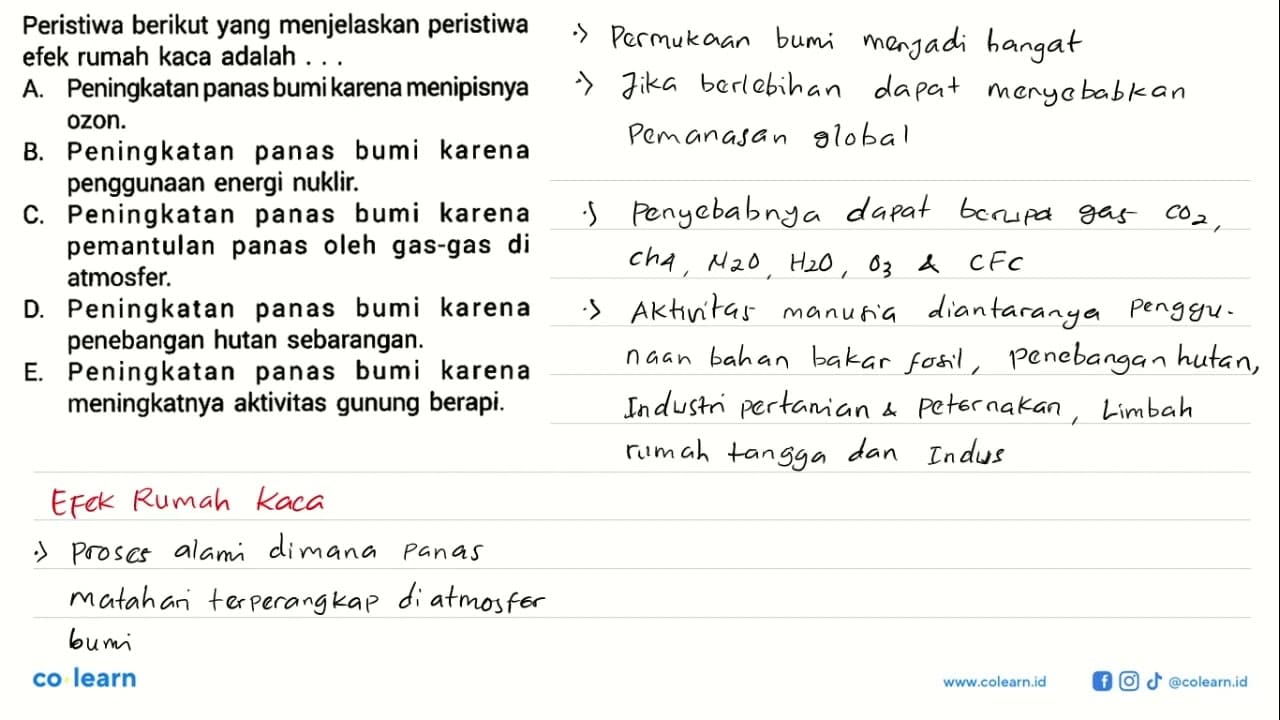 Peristiwa berikut yang menjelaskan peristiwa
efek rumah kaca adalah . . .
A. Peningkatan panas bumi karena menipisnya
ozon.
B. Peningkatan panas bumi karena
penggunaan energi nuklir.
C. Peningkatan panas bumi karena
pemantulan panas oleh gas-gas di
atmosfer.
D. Peningkatan panas bumi karena
penebangan hutan sebarangan.
E. Peningkatan panas bumi karena
meningkatnya aktivitas gunung berapi.
Efek Rumah Kaca
·> Proses alami dimana panas
matahari terperangkap di atmosfer
bumi
·> Permukaan bumi menjadi hangat
·> Jika berlebihan dapat menyebabkan
Pemanasan global
·> Penyebabnya dapat berupa gas CO2,
CH4, N2O, H2O, O3 & CFC
·> Aktivitas manusia diantaranya Penggu-
naan bahan bakar fosil, penebangan hutan,
Industri pertanian & peternakan, Limbah
rumah tangga dan Indus
co learn
www.colearn.id
@colearn.id